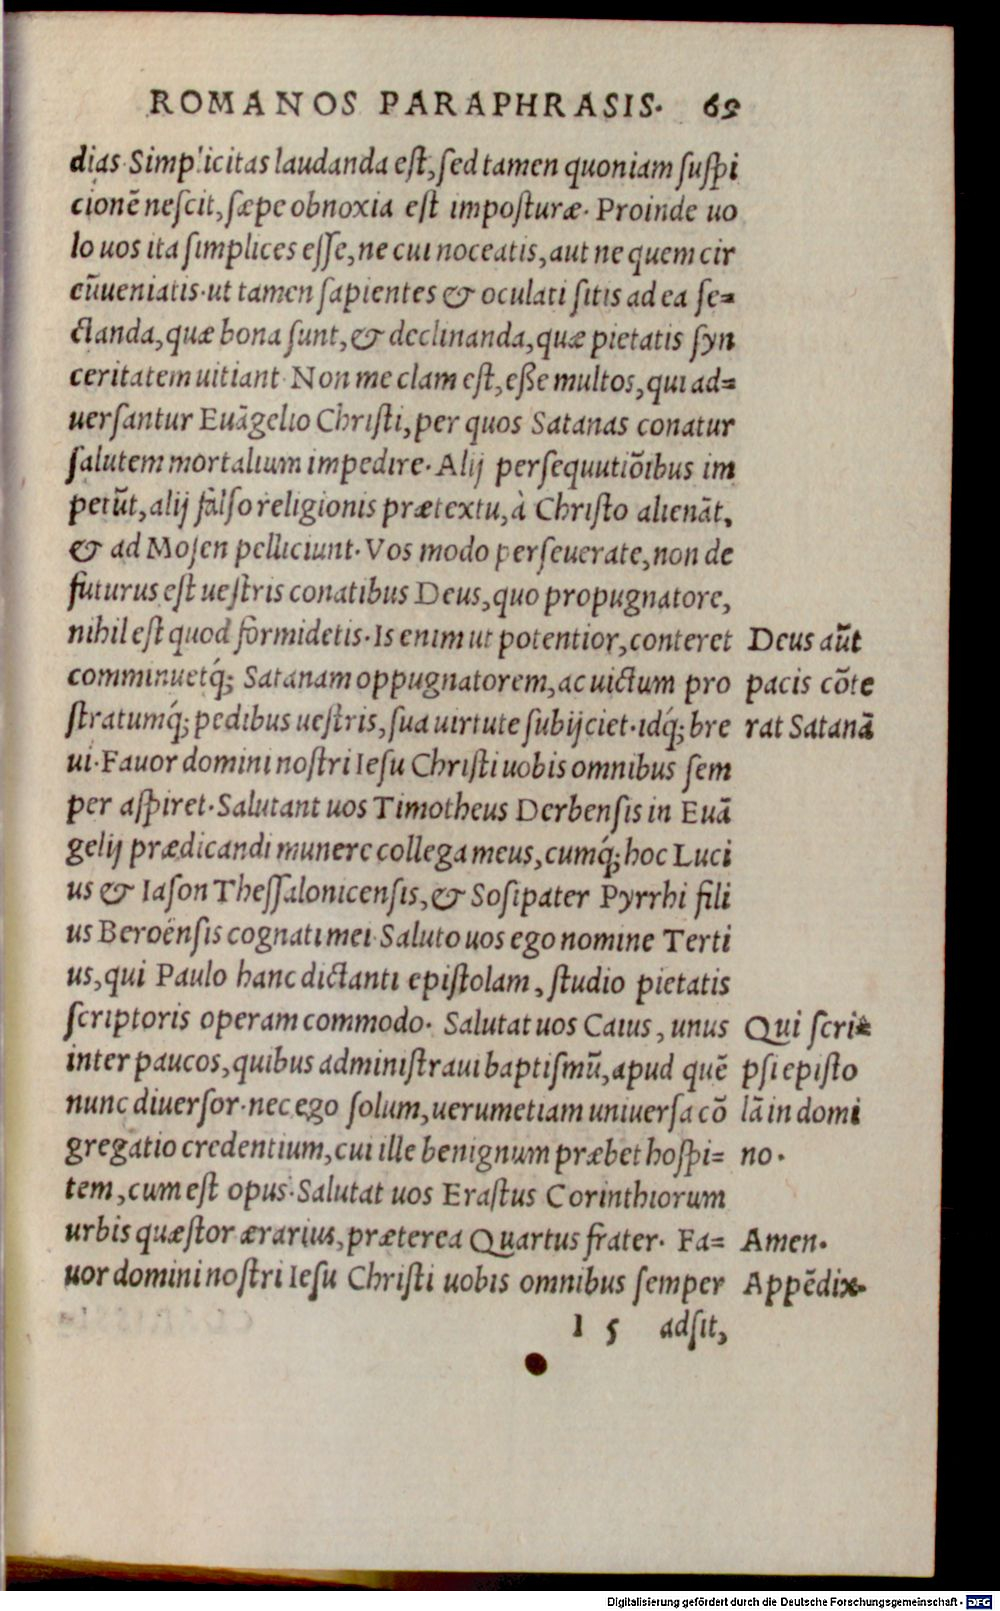 ROMANOS PARAPHRASIS. 69
dias. Simplicitas laudanda est, sed tamen quoniam suspi
cionē nescit, sæpe obnoxia est imposturæ. Proinde uo
lo uos ita simplices esse, ne cui noceatis, aut ne quem cir
cūueniatis. ut tamen sapientes & oculati sitis ad ea se=
ctanda, quæ bona sunt, & declinanda, quæ pietatis syn
ceritatem uitiant. Non me clam est, eße multos, qui ad=
uersantur Euāgelio Christi, per quos Satanas conatur
salutem mortalium impedire. Alij persequutiōibus im
petūt, alij falso religionis prætextu, à Christo alienāt,
& ad Mosen pelliciunt. Vos modo perseuerate, non de
futurus est uestris conatibus Deus, quo propugnatore,
nihil est quod formidetis. Is enim ut potentior, conteret
comminuetq́; Satanam oppugnatorem, ac uictum pro
stratumq́; pedibus uestris, sua uirtute subijciet. idq́; bre
ui. Fauor domini nostri Iesu Christi uobis omnibus sem
per aspiret. Salutant uos Timotheus Derbensis in Euā
gelij prædicandi munere collega meus, cumq́; hoc Luci
us & Iason Thessalonicensis, & Sosipater Pyrrhi fili
us Beroënsis cognati mei. Saluto uos ego nomine Terti
us, qui Paulo hanc dictanti epistolam, studio pietatis
scriptoris operam commodo. Salutat uos Caius, unus
inter paucos, quibus administraui baptismū, apud quē
nunc diuersor. nec ego solum, uerumetiam uniuersa cō
gregatio credentium, cui ille benignum præbet hospi=
tem, cum est opus. Salutat uos Erastus Corinthiorum
urbis quæstor ærarius, præterea Quartus frater. Fa=
uor domini nostri Iesu Christi uobis omnibus semper
l 5 adsit,
Deus aūt
pacis cōte
rat Satanā
Qui scri=
psi episto
lā in domi
no.
Amen.
Appēdix.
Digitalisierung gefördert durch die Deutsche Forschungsgemeinschaft - DFG